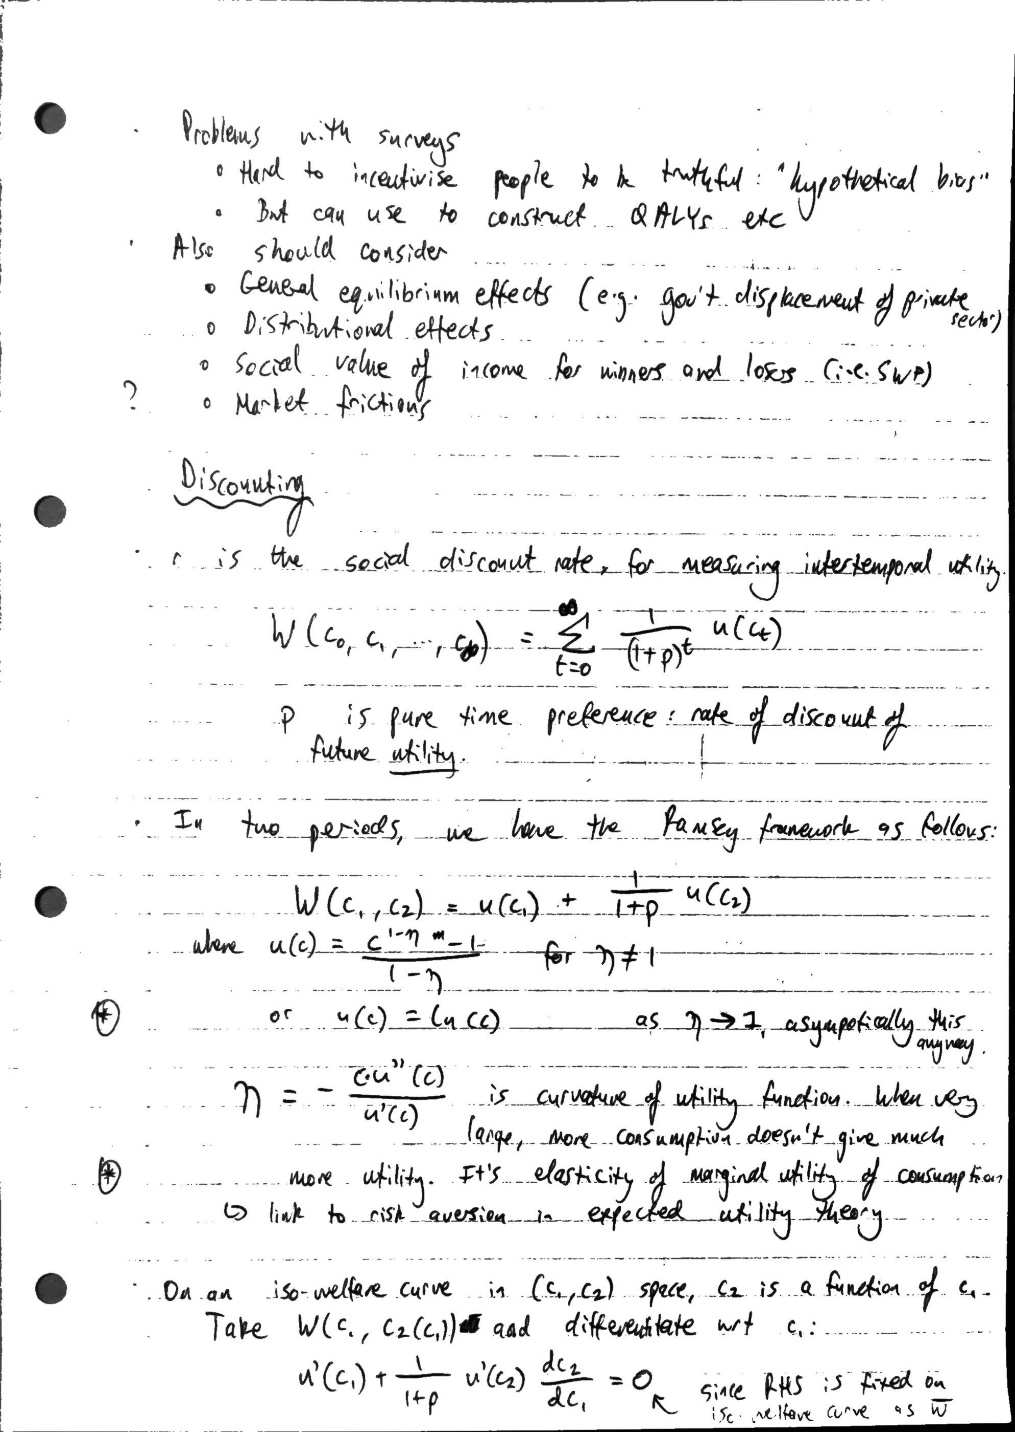 · Problems with surveys
∘ Hard to incentivise people to be truthful : "hypothetical bias"
∘ But can use to construct QALYs etc
· Also should consider
∘ General equilibrium effects (e.g. gov't displacement of private sector)
∘ Distributional effects
∘ Social value of income for winners and losers (i.e. SWF)
? ∘ Market frictions
Discounting
· r is the social discount rate, for measuring intertemporal utility.
W(c₀, c₁, ..., c∞) = ∑_{t=0}^{∞} 1/(1+ρ)^t u(c_t)
ρ is pure time preference : rate of discount of
future utility.
· In two periods, we have the Ramsey framework as follows:
W(c₁, c₂) = u(c₁) + 1/(1+ρ) u(c₂)
where u(c) = (c^{1-η} - 1)/(1-η) for η ≠ 1
(*) or u(c) = ln(c) as η → 1, asympotically this anyway.
η = - c·u''(c)/u'(c) is curvature of utility function. When very
large, more consumption doesn't give much
(*) more utility. It's elasticity of marginal utility of consumption
↳ link to risk aversion in expected utility theory
· On an iso-welfare curve in (c₁, c₂) space, c₂ is a function of c₁.
Take W(c₁, c₂(c₁)) and differentitate wrt c₁:
u'(c₁) + 1/(1+ρ) u'(c₂) dc₂/dc₁ = 0 ↖ since RHS is fixed on
iso-welfare curve as W̅